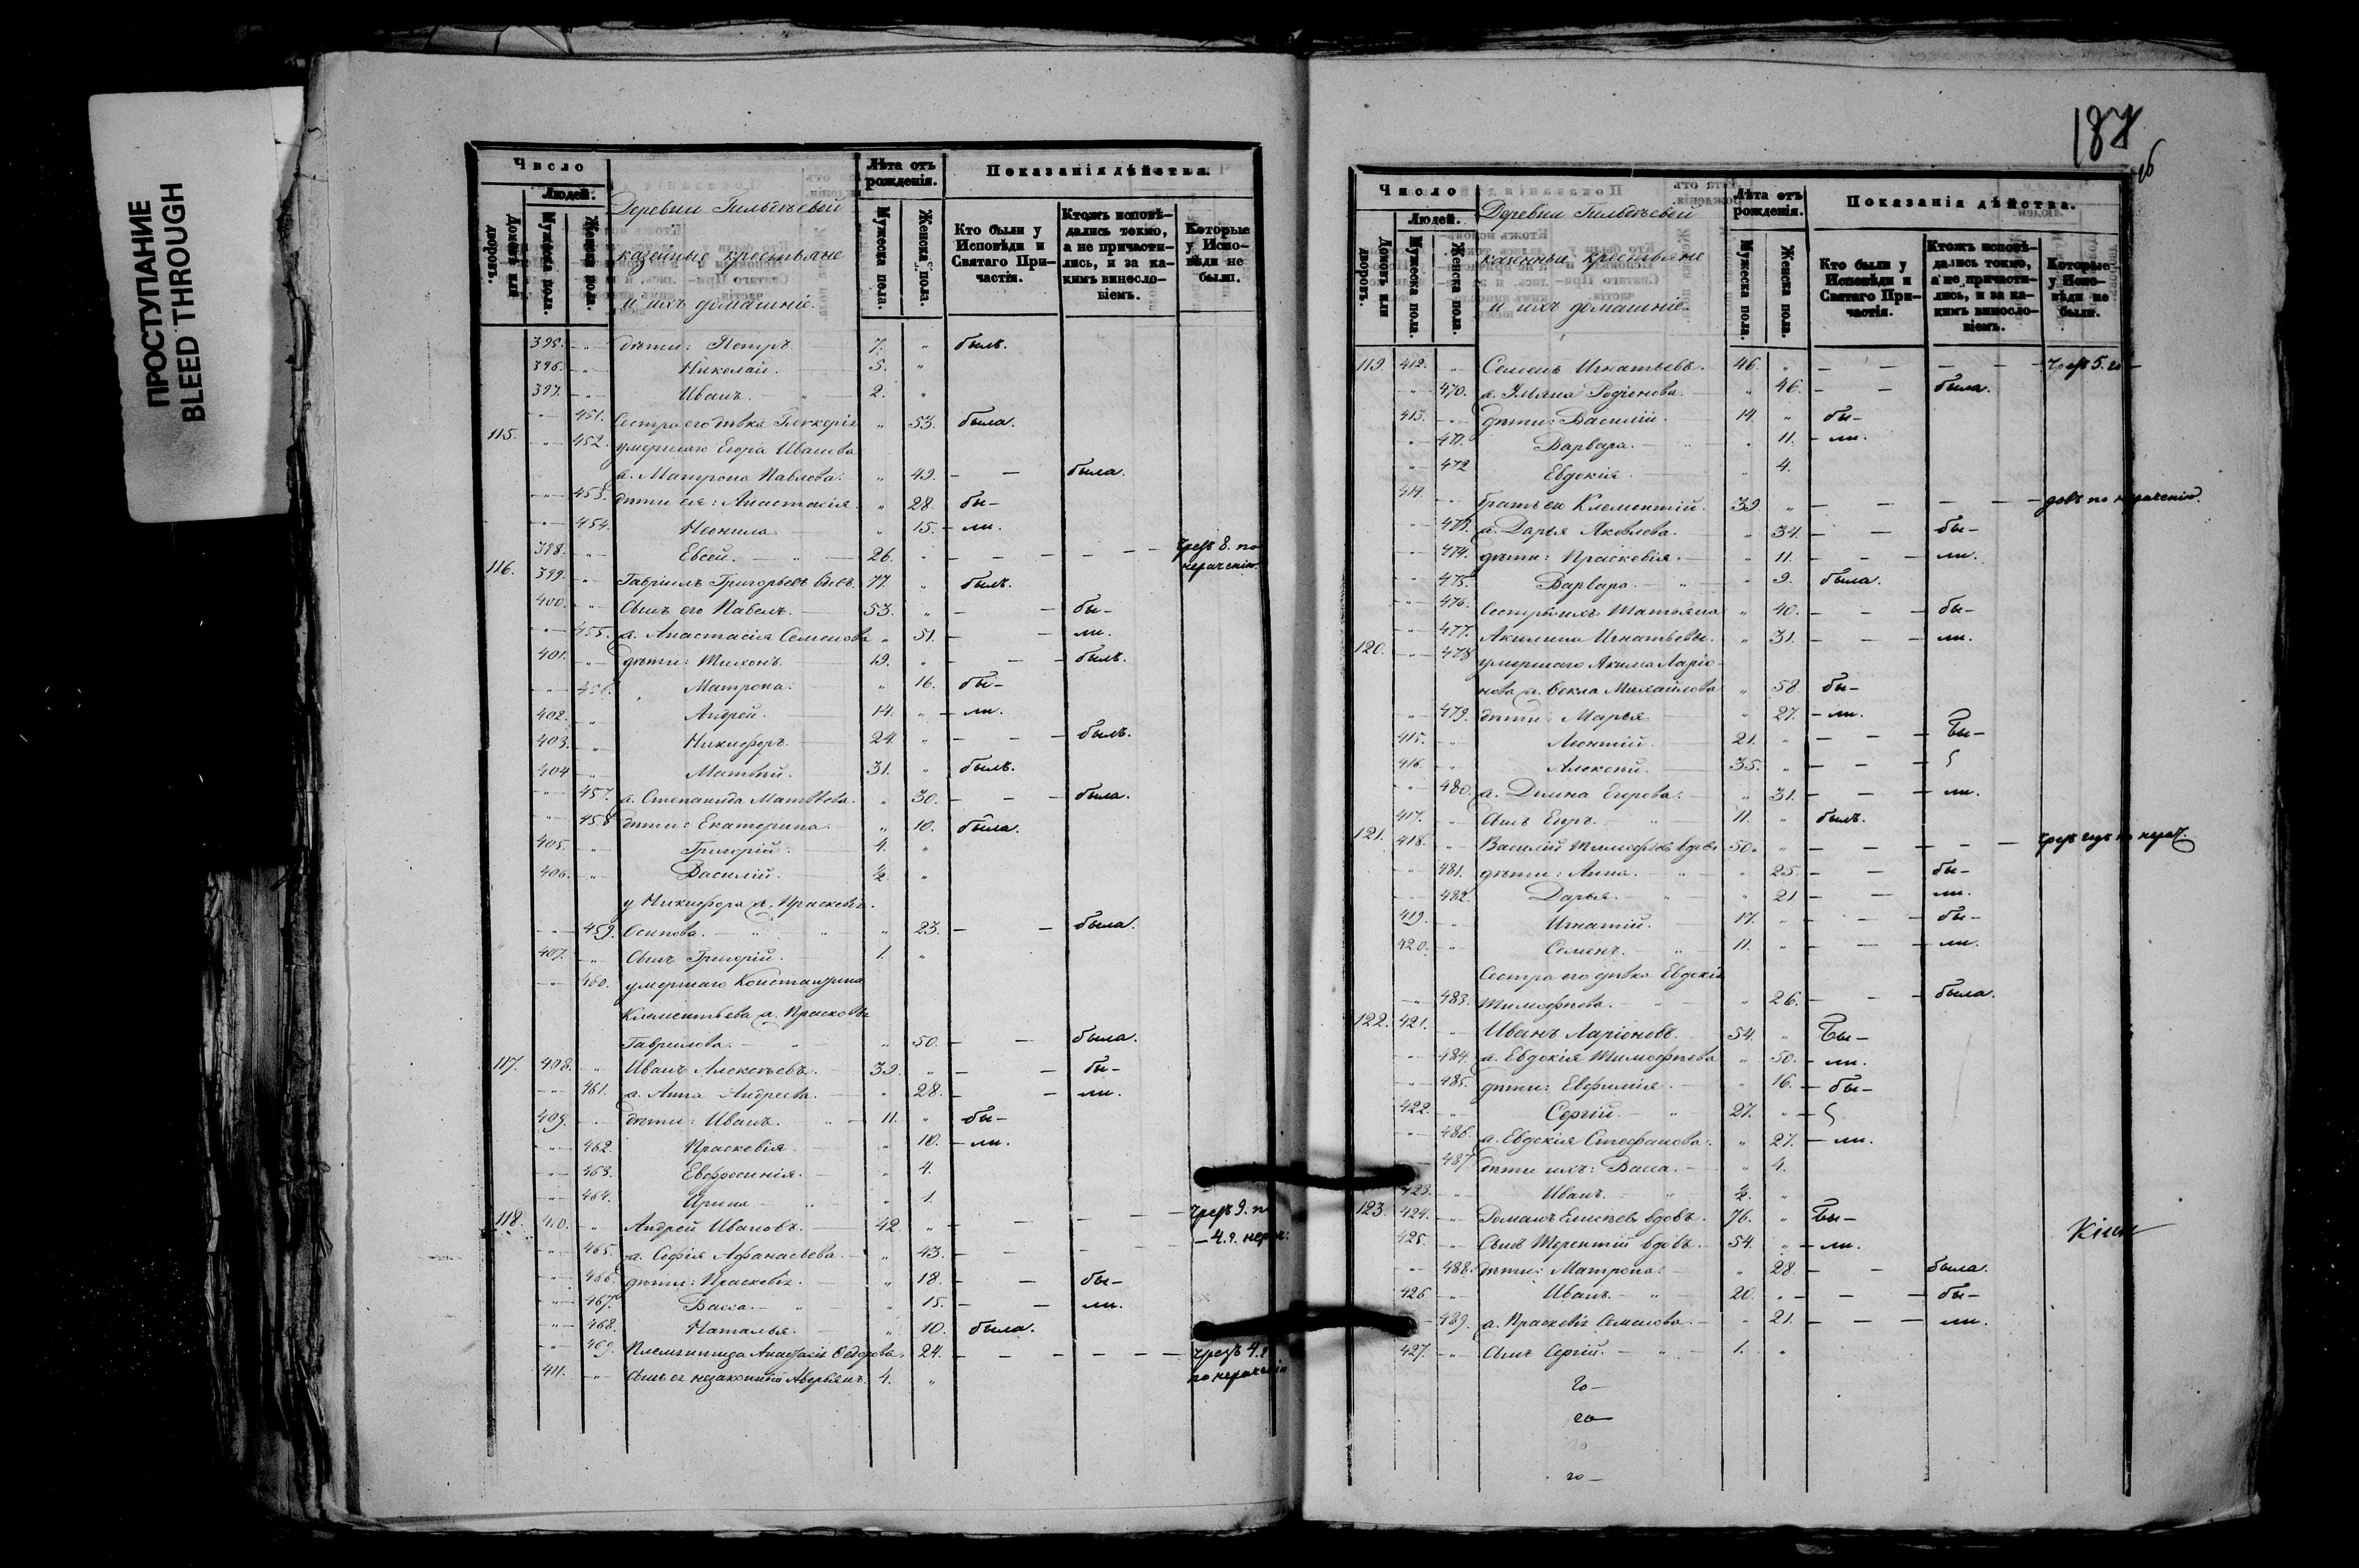 ПРОСТУПАНИЕ
BLEED THROUGH
Число
Людей.
Домовъ или дворовъ.
Мужеска пола.
Женска пола.
Деревни
казенные крестьяне
и ихъ домашніе.
Лѣта отъ рожденія.
Мужеска пола.
Женска пола.
Показанія дѣйства.
Кто были у Исповѣди и Святаго Причастія.
Ктожъ исповѣдались токмо, а не причастились, и за какимъ винословіемъ.
Которые у Исповѣди не были.
395. дѣти: Петръ. 7. былъ.
396. Николай. 5.
397. Иванъ. 2.
451. Сестра его дѣвка Гликерія 53. была.
115. 452. умершаго Егора Иванова
ж. Матрона Павлова. 49. была.
453. дѣти ея: Анастасія. 28. бы-
454. Неонила. 15. ли.
398. Евсей. 26. чрезъ 8. по нераченію.
116. 399. Гавріилъ Григорьевъ вдовъ. 77. былъ.
400. Сынъ его Павелъ. 53. бы-
455. ж. Анастасія Семенова 51. ли.
401. дѣти: Тихонъ. 19. былъ.
456. Матрона. 16. бы-
402. Андрей. 14. ли.
403. Никифоръ. 24. былъ.
404 Матвѣй. 31. былъ.
457. ж. Степанида Матвѣева. 30. была.
458 дѣти: Екатерина. 10. была.
405. Григорій. 4.
406. Василій. ½.
у Никифора ж. Праскевія
459. Осипова. 23. была.
407. Сынъ Григорій. 1.
460. умершаго Константина
Клементьева ж. Прасковья
Гаврилова. 50. была.
117. 408. Иванъ Алексѣевъ. 39. бы-
461. ж. Анна Андреева. 28. ли.
409. дѣти: Иванъ. 11. бы-
462. Праскевія 10. ли.
463. Евфросинія. 4.
464. Ирина 1.
118. 410. Андрей Ивановъ. 42. чрезъ 9.
465. ж. Софія Афанасьева. 43. 4.
466. дѣти: Праскевія. 18. бы-
467. Васса. 15. ли.
468. Наталья. 10. была.
469. Племянница Анастасія Ѳедорова. 24. чрезъ 4.
411. Сынъ ея незаконный Аверьянъ. 4. по нераченію
187
об
Число
Людей.
Домовъ или дворовъ.
Мужеска пола.
Женска пола.
Деревни
казенные крестьяне
и ихъ домашніе.
Лѣта отъ рожденія.
Мужеска пола.
Женска пола.
Показанія дѣйства.
Кто были у Исповѣди и Святаго Причастія.
Ктожъ исповѣдались токмо, а не причастились, и за какимъ винословіемъ.
Которые у Исповѣди не были.
119. 412. Семенъ Игнатьевъ. 46. чрезъ 5.
470. ж. Ульяна Родіонова. 46. была.
413. дѣти: Василій. 14. бы-
471. Варвара. 11. ли.
472 Евдокія. 4.
414. братъ его Клементій. 39. довъ по нераченію.
473. ж. Дарья Яковлева. 34. бы-
474. дѣти: Праскевія. 11. ли.
475. Варвара. 9. была.
476. Сестры ихъ Татьяна 40. бы-
477. Акилина Игнатьевы. 31. ли.
120. 478 умершаго Акима Ларіо-
нова ж. Ѳекла Михайлова 58. бы-
479. дѣти: Марья. 27. ли.
415. Леонтій. 21. бы-
416. Алексѣй. 35.
480. ж. Домна Егорова. 31. ли.
417. Сынъ Егоръ. 11. былъ.
121. 418. Василій Тимофѣевъ вдовъ 50. чрезъ годъ по нерач.
481. дѣти: Анна. 25. бы-
482. Дарья. 21 ли.
419. Игнатій. 17. бы-
420. Семенъ. 11. ли.
Сестра его дѣвка Евдокія
483. Тимофѣева. 26. была.
122. 421. Иванъ Ларіоновъ. 54. бы-
484. ж. Евдокія Тимофѣева 50. ли.
485. дѣти: Евфимія. 16. бы-
422. Сергій. 27.
486. ж. Евдокія Стефанова. 27. ли.
487 дѣти ихъ: Васса. 4.
423. Иванъ. ½.
123. 424. Романъ Елисѣевъ вдовъ. 76. бы-
425. Сынъ Терентій вдовъ. 54. ли.
488. дѣти: Матрона. 28. была.
426 Иванъ. 20. бы-
489. ж. Праскевія Семенова. 21. ли.
427. Сынъ Сергій. 1.